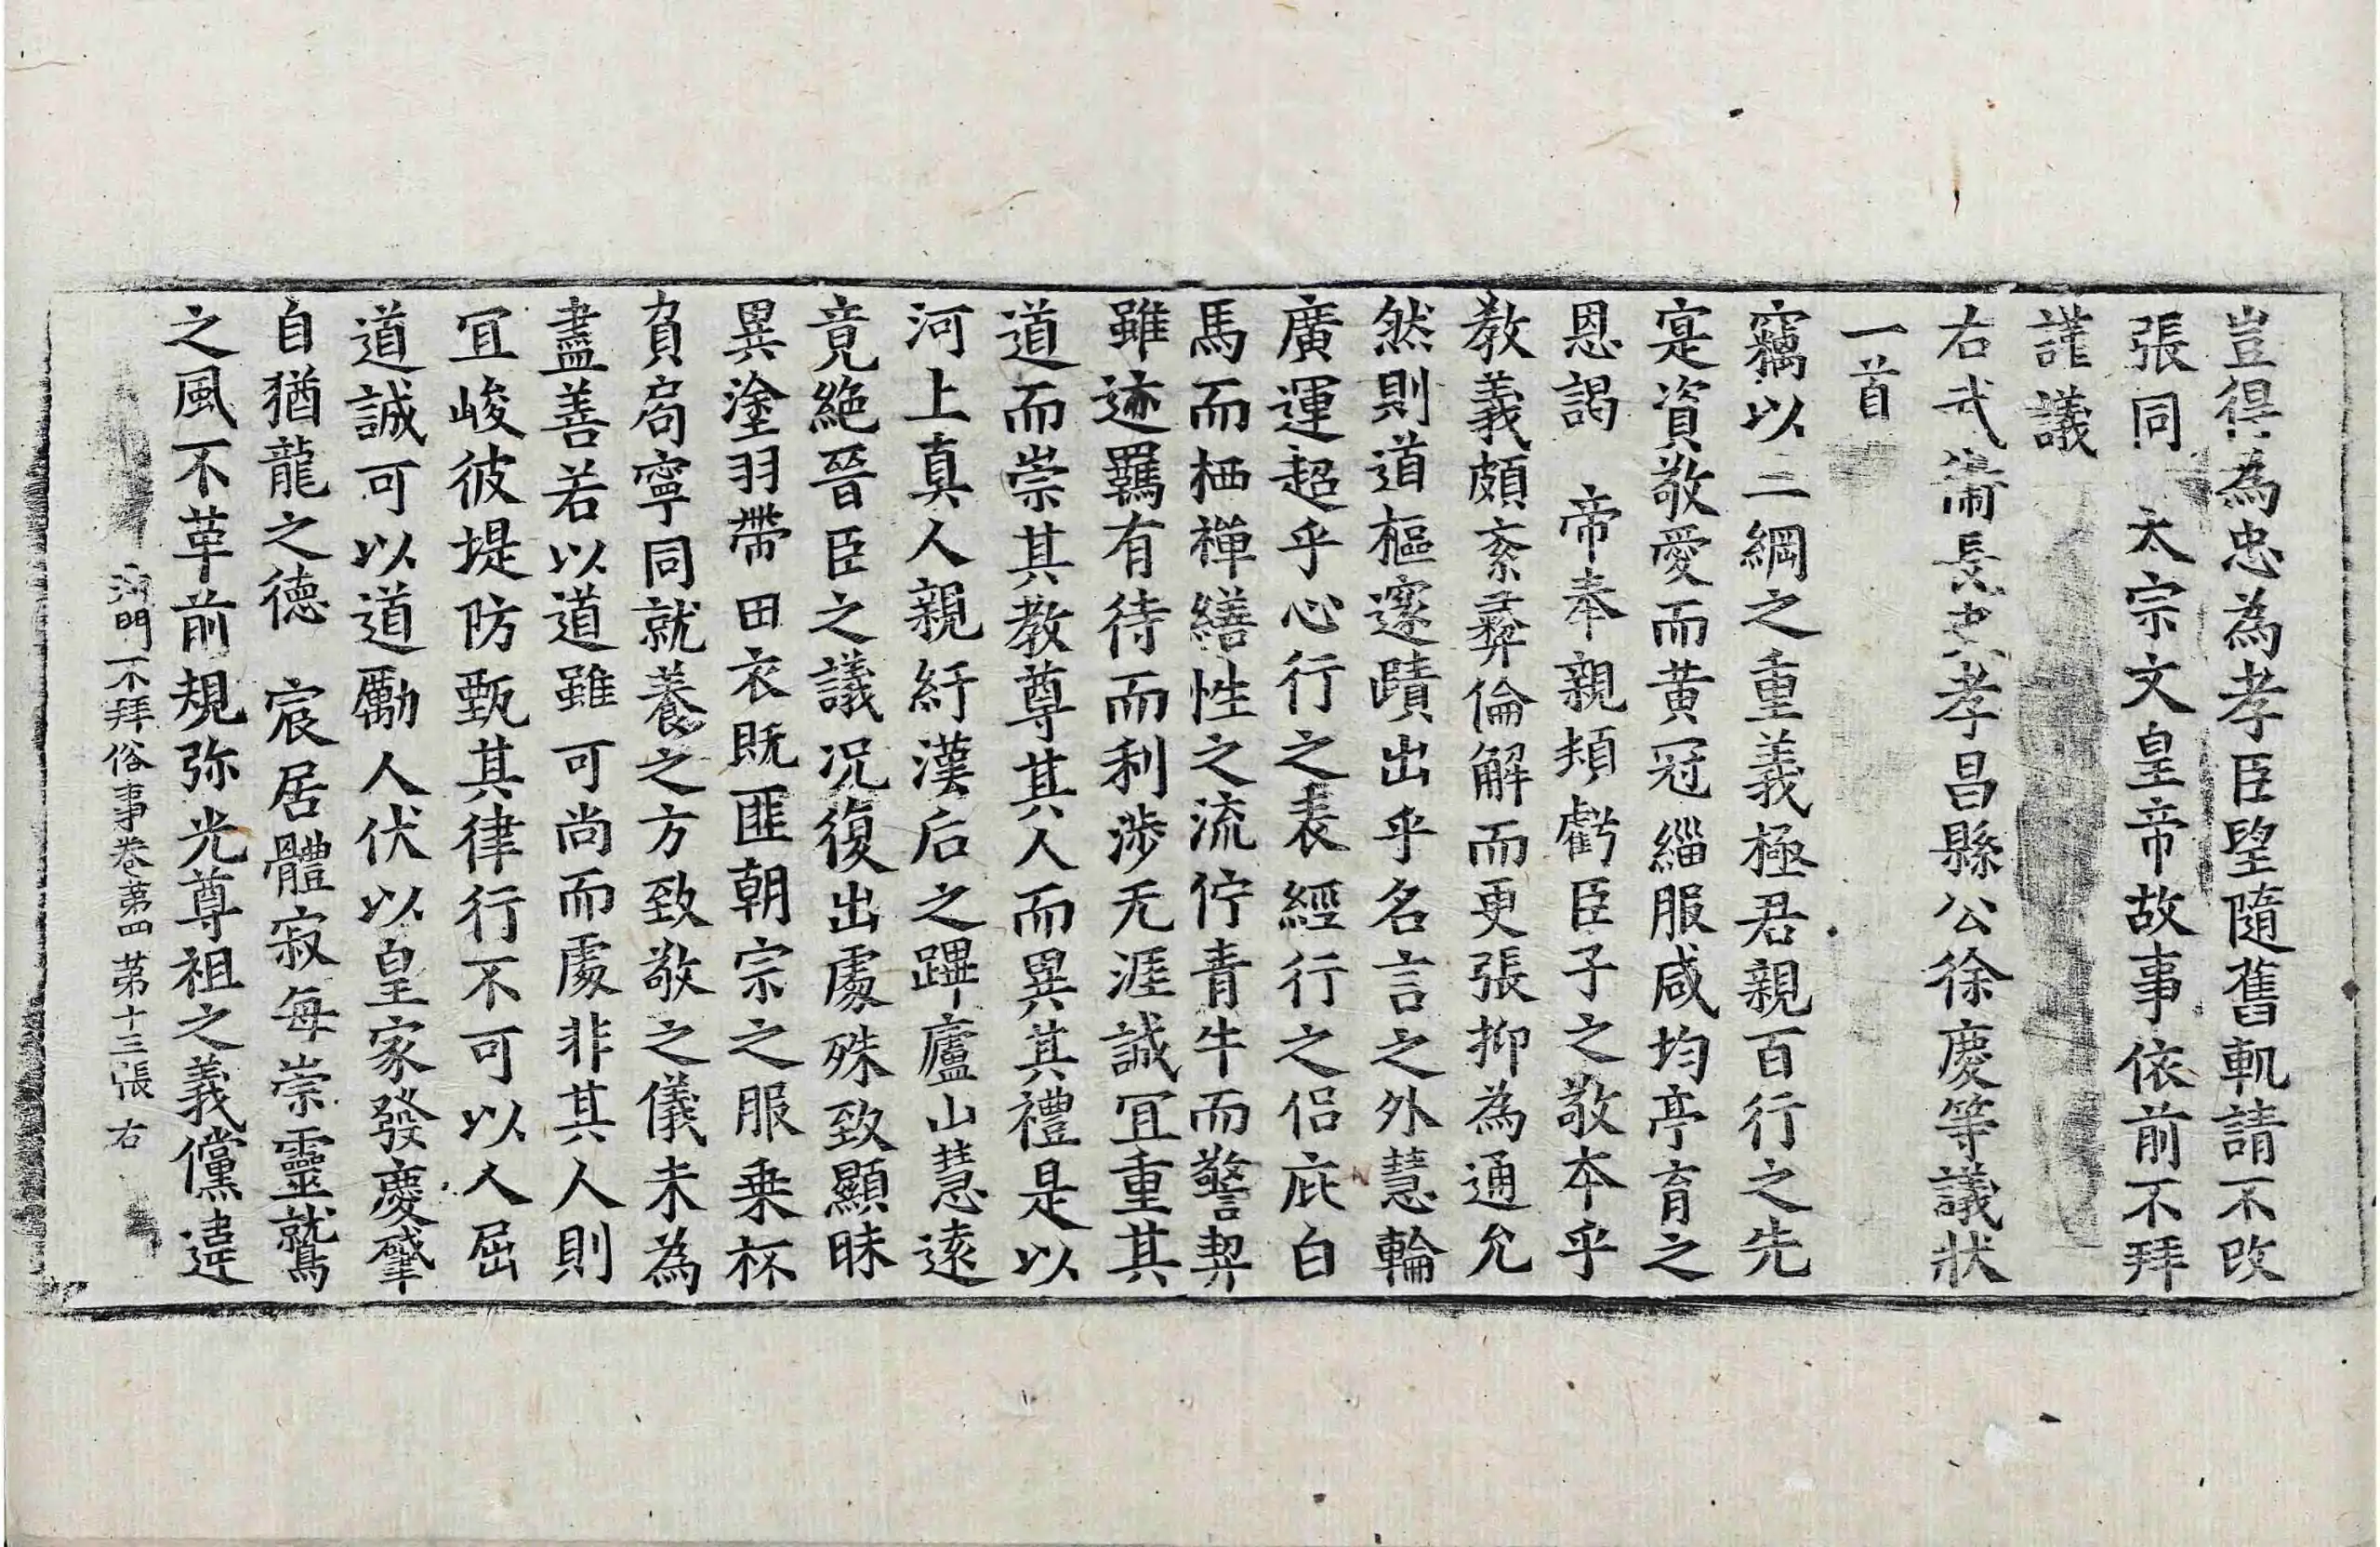 豈得為忠為孝臣望隨舊軌請不改
張同 太宗文皇帝故事依前不拜
謹議
右武衛長史孝昌縣公徐慶等議狀
一首
竊以二綱之重義極君親百行之先
寔資敬愛而黃冠緇服咸均亭育之
恩謁 帝奉親頻虧臣子之敬本乎
教義頗紊彝倫解而更張抑為通允
然則道樞邃賾出乎名言之外慧輪
廣運超乎心行之表經行之侶庇白
馬而栖禪繕性之流佇青牛而警契
雖迹羈有待而利涉无涯誠冝重其
道而崇其教尊其人而異其禮是以
河上真人親紆漢后之蹕廬山慧遠
竟絶晉臣之議况復出處殊致顯昧
異塗羽帶田衣既匪朝宗之服乗杯
負局寧同就養之方致敬之儀未為
盡善若以道雖可尚而處非其人則
冝峻彼堤防甄其律行不可以人屈
道誠可以道勵人伏以皇家發慶肇
自猶龍之德 宸居體寂每崇靈鷲
之風不革前規弥光尊祖之義儻違
沙門不拜俗事卷第四 第十三張 右